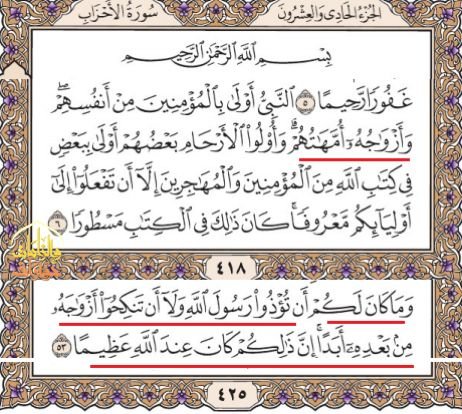 الجُزْءُ الحَادِى وَالعِشْرُونَ
سُورَةُ الأَحْزَابِ
بِسْمِ اللَّهِ الرَّحْمَٰنِ الرَّحِيمِ
غَفُورًا رَّحِيمًا ٥ النَّبِىُّ أَوْلَىٰ بِالْمُؤْمِنِينَ مِنْ أَنفُسِهِمْ ۖ
وَأَزْوَٰجُهُۥٓ أُمَّهَٰتُهُمْ ۗ وَأُو۟لُوا۟ الْأَرْحَامِ بَعْضُهُمْ أَوْلَىٰ بِبَعْضٍ
فِى كِتَٰبِ اللَّهِ مِنَ الْمُؤْمِنِينَ وَالْمُهَٰجِرِينَ إِلَّآ أَن تَفْعَلُوٓا۟ إِلَىٰٓ
أَوْلِيَآئِكُم مَّعْرُوفًا ۚ كَانَ ذَٰلِكَ فِى الْكِتَٰبِ مَسْطُورًا ٦
٤١٨
وَمَا كَانَ لَكُمْ أَن تُؤْذُوا۟ رَسُولَ اللَّهِ وَلَآ أَن تَنكِحُوٓا۟ أَزْوَٰجَهُۥ
مِنۢ بَعْدِهِۦٓ أَبَدًا ۚ إِنَّ ذَٰلِكُمْ كَانَ عِندَ اللَّهِ عَظِيمًا ٥٣
٤٢٥